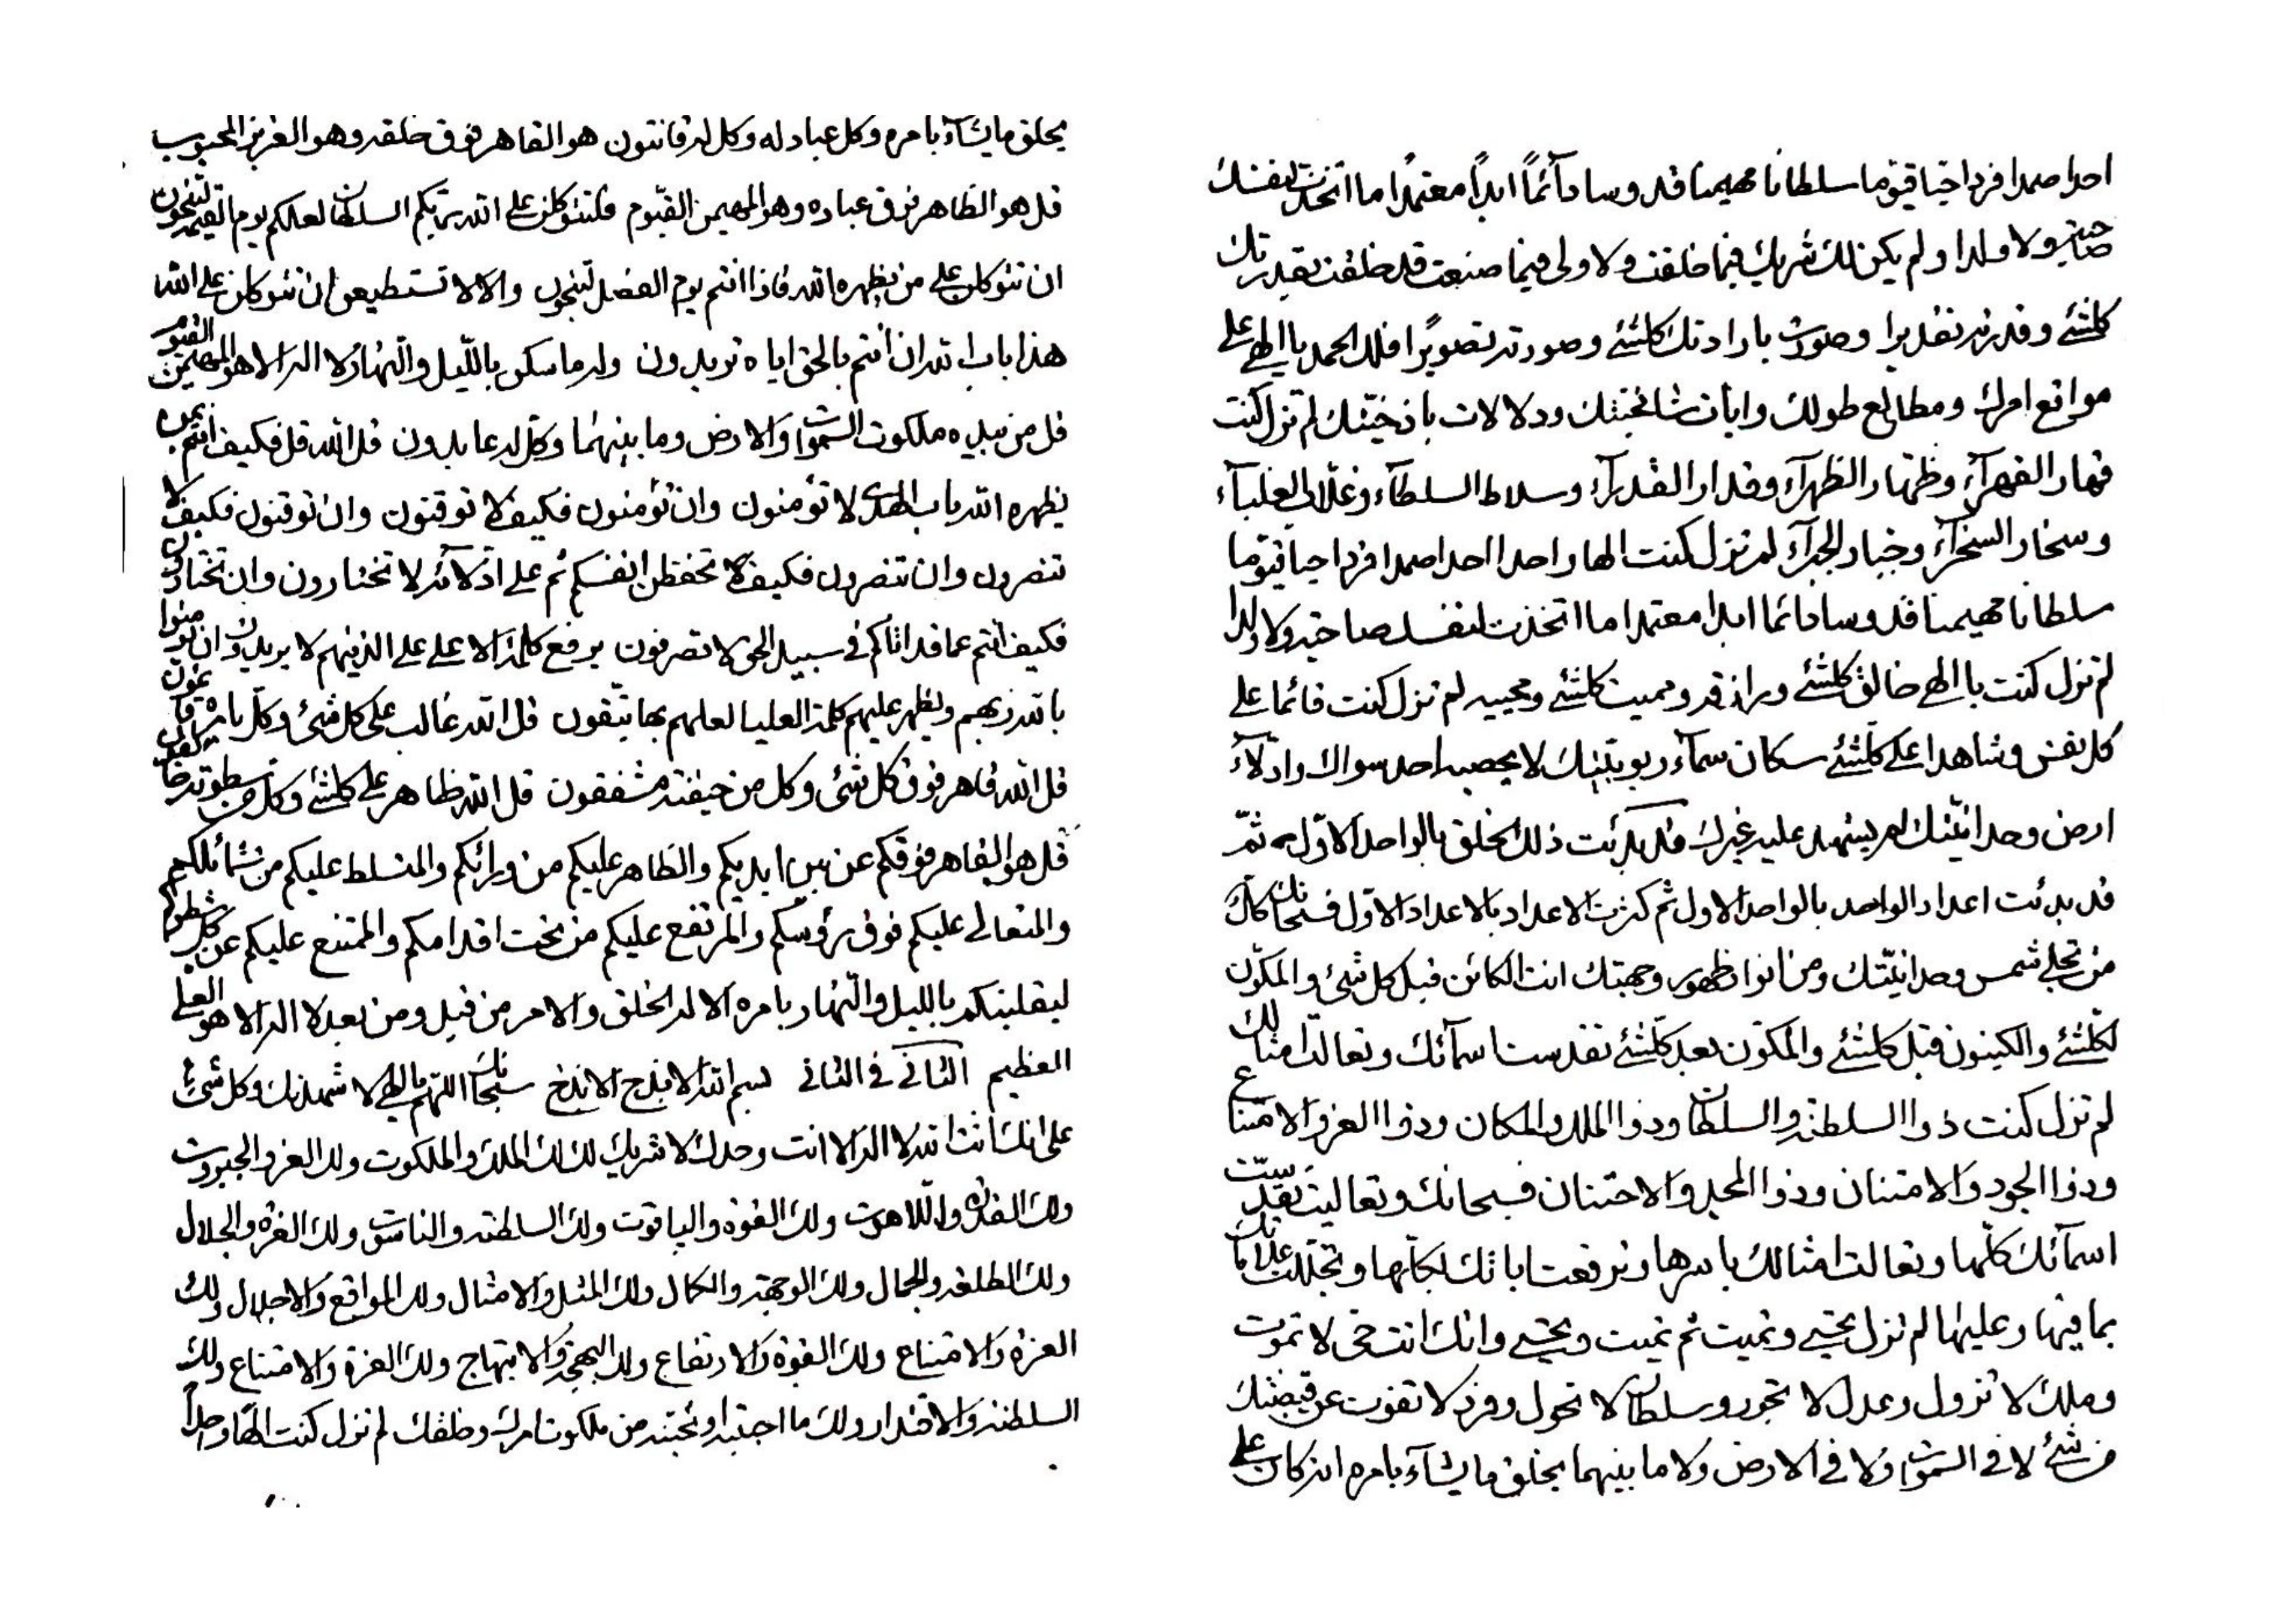 يخلق ما يشآء بامره وكل عباد له وكل له قانتون هو القاهر فوق خلقه وهو العزيز المحبوب
قل هو الظاهر فوق عباده وهو المهيمن القيوم فلتتوكلن على الله ربكم السلطان لعلكم يوم القيمه لتنجون
ان تتوكلن على من يظهره الله فاذا انتم يوم الفصل لتنجون والا لا تستطيعن ان تتوكلن على الله
هذا باب الله ان انتم بالحق اياه تريدون وله ما سكن بالليل والنهار لا اله الا هو المهيمن القيوم
قل من بيده ملكوت السموات والارض وما بينهما وكل له عابدون قل الله قل فكيف انتم بمن
يظهره الله باب الهدى لا تؤمنون وان تؤمنون فكيف لا توقنون وان توقنون فكيف لا
تنصرون وان تنصرون فكيف لا تحفظن انفسكم ثم على ادلائه لا تختارون وان تختارون
فكيف انتم عما قد اتاكم في سبيل الحق لا تصرفون يرفع كلمته الاعلى على الذينهم لا يريدون ان يؤمنوا
بالله ربهم ويظهر عليهم كلمته العليا لعلهم بها يتقون قل الله غالب على كل شئ وكل بامره قائمون
قل الله قاهر فوق كل شئ وكل من خيفته مشفقون قل الله ظاهر على كلشئ وكل من سطوته خائفون
قل هو القاهر فوقكم عن بين ايديكم والظاهر عليكم من ورائكم والمتسلط عليكم من شمائلكم
والمتعالى عليكم فوق رؤسكم والمرتفع عليكم من تحت اقدامكم والممتنع عليكم عن كل شطركم
ليقلبنكم بالليل والنهار بامره الا له الخلق والامر من قبل ومن بعد لا اله الا هو العلي
العظيم الثاني في الثاني بسم الله الابذخ الابذخ سبحانك اللهم يا الهي لاشهدنك وكل شئ
على انك انت الله لا اله الا انت وحدك لا شريك لك لك الملك والملكوت ولك العز والجبروت
ولك القدرة واللاهوت ولك القوة والياقوت ولك السلطنة والناسوت ولك العزة والجلال
ولك الطلعة والجمال ولك الوجهة والكمال ولك المثل والامثال ولك المواقع والاجلال ولك
العزة والامتناع ولك القوة والارتفاع ولك البهجة والابتهاج ولك العزة والامتناع ولك
السلطنة والاقتدار ولك ما احببته او تحبنه من ملكوت امرك وخلقك لم تزل كنت الها واحدا
احدا صمدا فردا حيا قيوما سلطانا مهيمنا قدوسا دآئماً ابداً معتمداً ما اتخذت لنفسك
صاحبة ولا ولدا ولم يكن لك شريك فيما خلقت ولا ولي فيما صنعت قد خلقت بقدرتك
كلشئ وقدرته تقديرا وصورت بارادتك كلشئ وصورته تصويرًا فلك الحمد يا الهي على
مواقع امرك ومطالع طولك وايات شامخيتك ودلالات باذخيتك لم تزل كنت
قهار القهرآء وظهار الظهرآء وقدار القدرآء وسلاط السلطآء وغلاب الغلبآء
وسخار السخرآء وجبار الجبرآء لم تزل كنت الها واحدا احدا صمدا فردا حيا قيوما
سلطانا مهيمنا قدوسا دائما ابدا معتمدا ما اتخذت لنفسك صاحبة ولا ولدا
لم تزل كنت يا الهي خالق كلشئ ورازقه ومميت كلشئ ومحييه لم تزل كنت قائما على
كل نفس وشاهدا على كلشئ سكان سمآء ربوبيتك لا يحصيه احد سواك وادلآء
ارض وحدانيتك لم يشهد عليه غيرك قد بدئت ذلك الخلق بالواحد الاول ثم
قد بدئت اعداد الواحد بالواحد الاول ثم كثرت الاعداد بالاعداد الاول فسبحانك كل ذلك
من تجلى شمس وحدانيتك ومن انوار ظهور وجهتك انت الكائن قبل كل شئ والمكون
لكلشئ والكينون قبل كلشئ والمكون بعد كلشئ تقدست اسمآئك وتعالت امثالك
لم تزل كنت ذوا السلطنة والسلطان وذوا الملك والمكان وذوا العز والامتناع
وذوا الجود والامتنان وذوا المجد والاحتنان فسبحانك وتعاليت تقدست
اسمآئك كلها وتعالت امثالك باسرها وترفعت اياتك بكلها وتجللت علاماتك
بما فيها وعليها لم تزل تحيي وتميت ثم تميت وتحيي وانك انت حي لا تموت
وملك لا تزول وعدل لا تجور وسلطان لا تحول وفرد لا تفوت عن قبضتك
من شئ لا في السموات ولا في الارض ولا ما بينهما يخلق ما يشآء بامره انه كان على